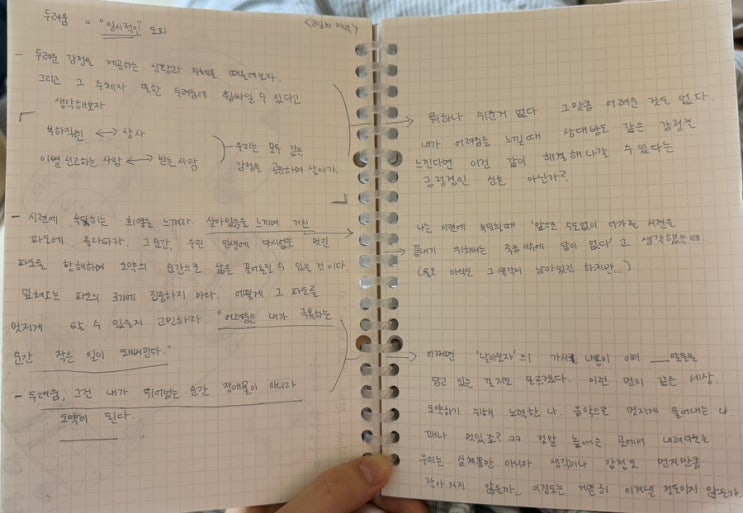 두려움 = "일시적인" 도피
- 두려운 감정을 제공하는 상황과 주체를 떠올려보자.
그리고 그 주체자 또한 두려움에 휩싸일 수 있다고
생각해보자
부하직원 ↔ 상사
이별 선고하는 사람 ↔ 받는 사람
우리는 모두 같은
감정을 공유하며 살아가.
- 시련에 복받치는 희열을 느껴라. 살아있음을 느끼며 거친
파도에 올라타라. 그 순간, 우린 인생에 다시없을 멋진
파도를 항해하며 도약의 순간으로 삶을 끌어올릴 수 있을 것이다
멈춰서는 파도의 크기에 집중하지 마라. 어떻게 그 파도를
멋지게 탈 수 있을지 고민하라. "어려움은 내가 극복하는
순간 작은 일이 돼버린다."
- 두려움, 그건 내가 뛰어넘는 순간 장애물이 아니라
도약이 된다.
→ 뭐하나 쉬운거 없다. 그만큼 어려운 것도 없다.
내가 어려움을 느낄때 상대방도 같은 감정을
느낀다면 이건 같이 해결해나갈 수 있다는
긍정적인 신호 아닌가?
나는 시련에 복받칠때 '앞으로 수도없이 다가올 시련을
끝내기 위해서는 죽음밖에 답이 없다' 고 생각했는데.
(물론 아직도 그 생각이 남아있긴 하지만...)
→ 어쩌면 '날아보자'의 가사 내용이 이미 말들을
담고 있는 걸지도 모르겠다. 이런 먼지 같은 세상.
도약하기 위해 노력한 나. 음악으로 멋지게 풀어내는 나.
꽤나 멋있죠? ㅋㅋ 정말 높은 곳에서 내려다보는
우리는 실체뿐만 아니라 생각이나 감정도 먼지만큼
작아지지 않을까.. 이정도는 거뜬히 이겨낼 정도이지 않을까.